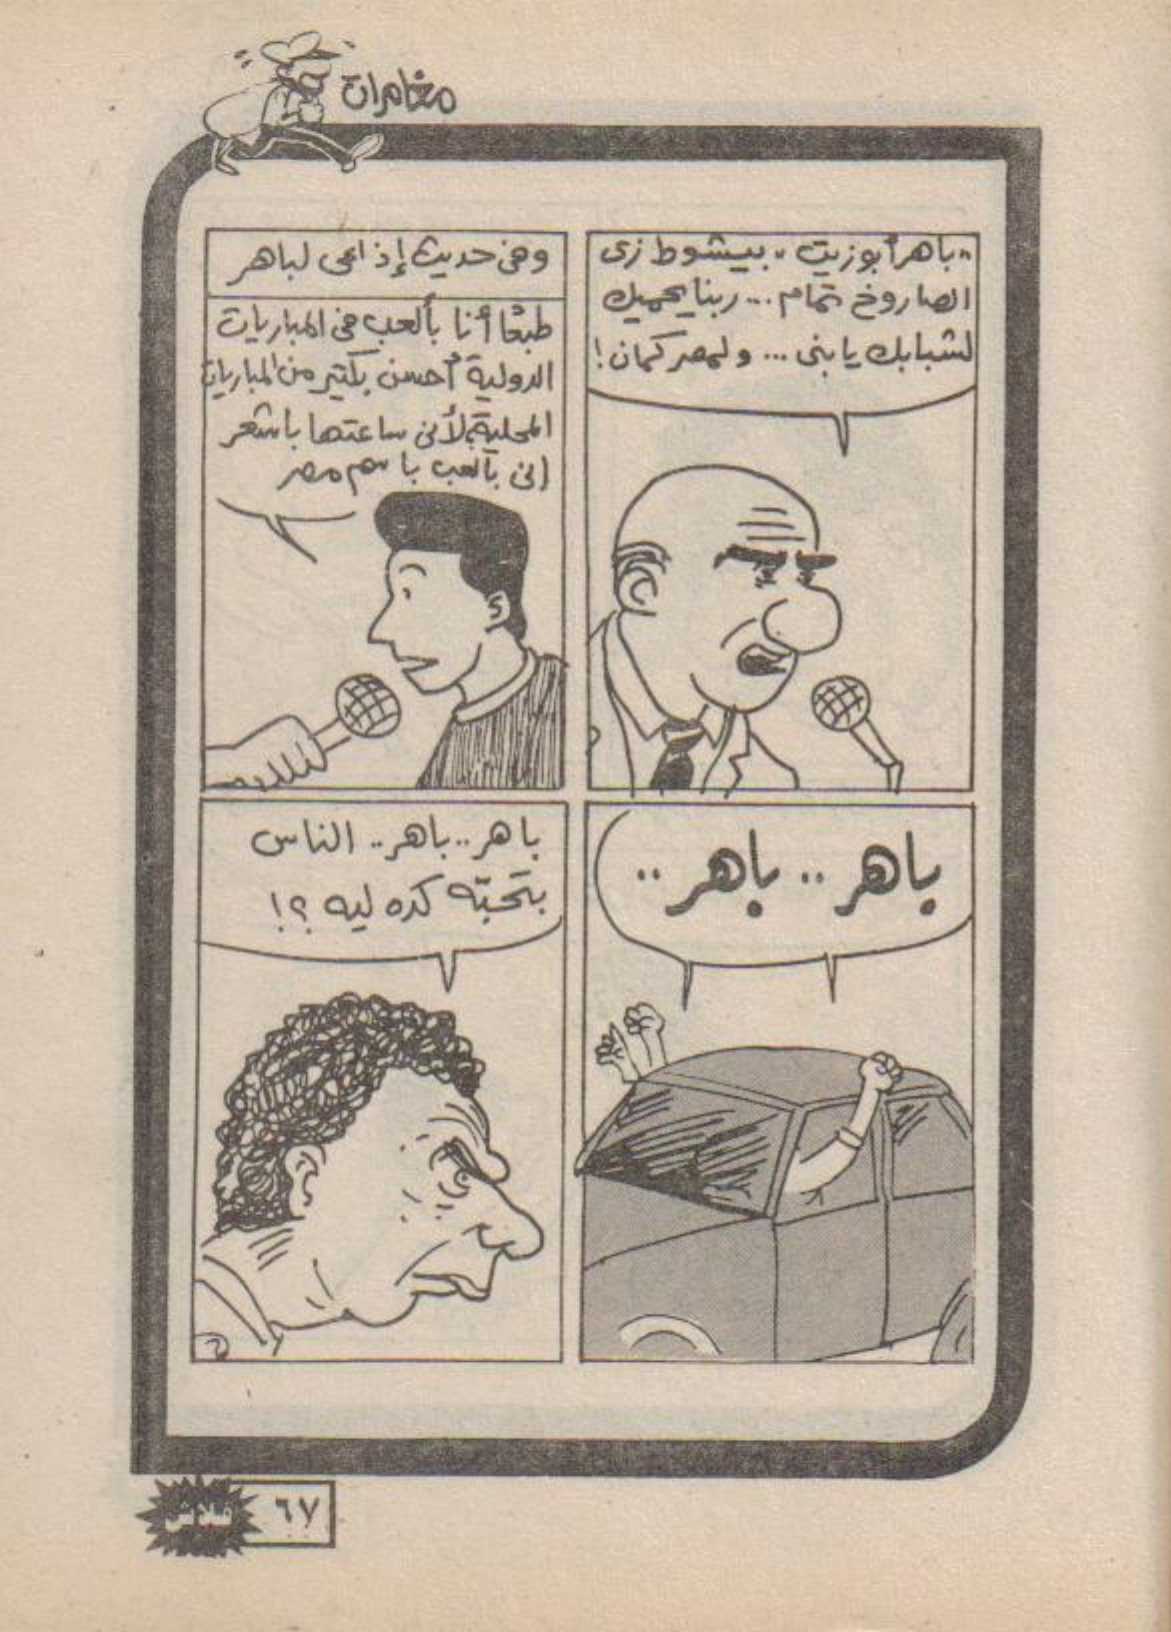 مغامرات
"باهر أبوزيت" بيشوط زى
الصاروخ تمام... ربنا يحميك
لشبابك يا بنى... ولمصر كمان!
وفى حديث إذاعى لباهر
طبعًا أنا بألعب فى المباريات
الدولية أحسن بكتير من المباريات
المحلية لأنى ساعتها باشعر
انى بألعب باسم مصر
باهر.. باهر..
باهر.. باهر.. الناس
بتحبّه كده ليه ؟!
٦٧
فلاش